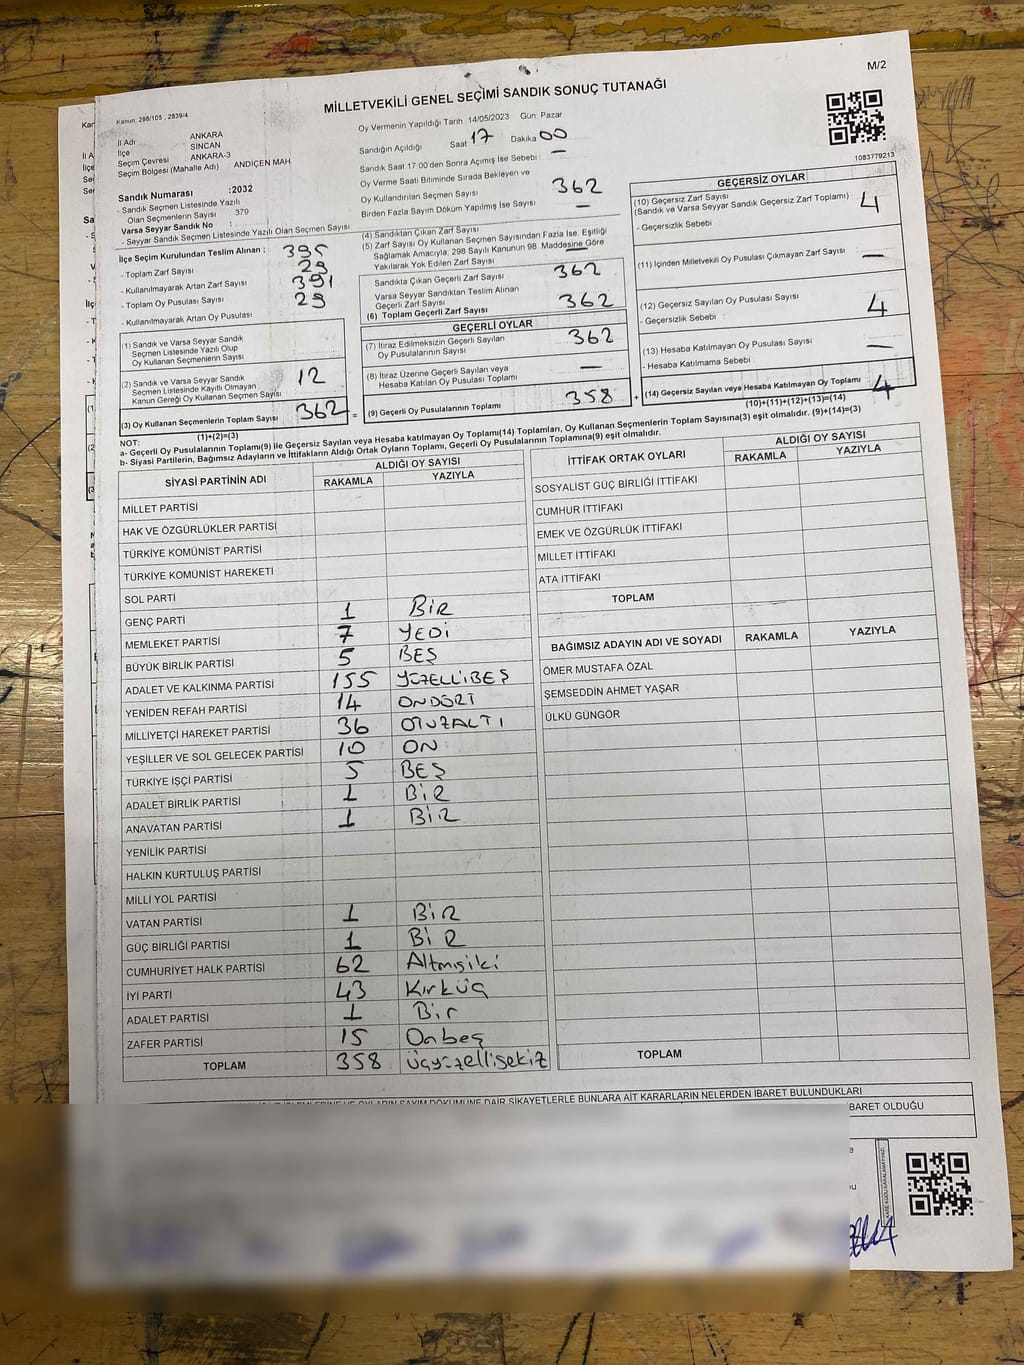 M/2
MİLLETVEKİLİ GENEL SEÇİMİ SANDIK SONUÇ TUTANAĞI
Kanun, 298/105 , 2839/4
İl Adı ANKARA
İlçe SİNCAN
Seçim Çevresi ANKARA-3
Seçim Bölgesi (Mahalle Adı) ANDİÇEN MAH
Sandık Numarası :2032
- Sandık Seçmen Listesinde Yazılı
Olan Seçmenlerin Sayısı 379
Varsa Seyyar Sandık No :
- Seyyar Sandık Seçmen Listesinde Yazılı Olan Seçmen Sayısı
Oy Vermenin Yapıldığı Tarih 14/05/2023 Gün: Pazar
Sandığın Açıldığı Saat 17 Dakika 00
Sandık Saat 17:00'den Sonra Açılmış İse Sebebi : —
Oy Verme Saati Bitiminde Sırada Bekleyen ve
Oy Kullandırılan Seçmen Sayısı
Birden Fazla Sayım Döküm Yapılmış İse Sayısı —
1083779213
İlçe Seçim Kurulundan Teslim Alınan :
- Toplam Zarf Sayısı 395
- Kullanılmayarak Artan Zarf Sayısı 29
- Toplam Oy Pusulası Sayısı 391
- Kullanılmayarak Artan Oy Pusulası 29
(1) Sandık ve Varsa Seyyar Sandık
Seçmen Listesinde Yazılı Olup
Oy Kullanan Seçmenlerin Sayısı
(2) Sandık ve Varsa Seyyar Sandık
Seçmen Listesinde Kayıtlı Olmayan
Kanun Gereği Oy Kullanan Seçmen Sayısı 12
(3) Oy Kullanan Seçmenlerin Toplam Sayısı 362
(1)+(2)=(3)
(4) Sandıktan Çıkan Zarf Sayısı 362
(5) Zarf Sayısı Oy Kullanan Seçmen Sayısından Fazla İse, Eşitliği
Sağlamak Amacıyla, 298 Sayılı Kanunun 98. Maddesine Göre
Yakılarak Yok Edilen Zarf Sayısı —
Sandıkta Çıkan Geçerli Zarf Sayısı 362
Varsa Seyyar Sandıktan Teslim Alınan
Geçerli Zarf Sayısı
(6) Toplam Geçerli Zarf Sayısı 362
GEÇERLİ OYLAR
(7) İtiraz Edilmeksizin Geçerli Sayılan
Oy Pusulalarının Sayısı 362
(8) İtiraz Üzerine Geçerli Sayılan veya
Hesaba Katılan Oy Pusulası Toplamı —
= (9) Geçerli Oy Pusulalarının Toplamı 358 +
GEÇERSİZ OYLAR
(10) Geçersiz Zarf Sayısı
(Sandık ve Varsa Seyyar Sandık Geçersiz Zarf Toplamı) 4
- Geçersizlik Sebebi
(11) İçinden Milletvekili Oy Pusulası Çıkmayan Zarf Sayısı —
(12) Geçersiz Sayılan Oy Pusulası Sayısı 4
- Geçersizlik Sebebi :
(13) Hesaba Katılmayan Oy Pusulası Sayısı —
- Hesaba Katılmama Sebebi
(14) Geçersiz Sayılan veya Hesaba Katılmayan Oy Toplamı 4
(10)+(11)+(12)+(13)=(14)
NOT:
a- Geçerli Oy Pusulalarının Toplamı(9) ile Geçersiz Sayılan veya Hesaba katılmayan Oy Toplamı(14) Toplamları, Oy Kullanan Seçmenlerin Toplam Sayısına(3) eşit olmalıdır. (9)+(14)=(3)
b- Siyasi Partilerin, Bağımsız Adayların ve İttifakların Aldığı Ortak Oyların Toplamı, Geçerli Oy Pusulalarının Toplamına(9) eşit olmalıdır.
SİYASİ PARTİNİN ADI ALDIĞI OY SAYISI
RAKAMLA YAZIYLA
MİLLET PARTİSİ
HAK VE ÖZGÜRLÜKLER PARTİSİ
TÜRKİYE KOMÜNİST PARTİSİ
TÜRKİYE KOMÜNİST HAREKETİ
SOL PARTİ
GENÇ PARTİ 1 BİR
MEMLEKET PARTİSİ 7 YEDİ
BÜYÜK BİRLİK PARTİSİ 5 BEŞ
ADALET VE KALKINMA PARTİSİ 155 YÜZELLİBEŞ
YENİDEN REFAH PARTİSİ 14 ONDÖRT
MİLLİYETÇİ HAREKET PARTİSİ 36 OTUZALTI
YEŞİLLER VE SOL GELECEK PARTİSİ 10 ON
TÜRKİYE İŞÇİ PARTİSİ 5 BEŞ
ADALET BİRLİK PARTİSİ 1 BİR
ANAVATAN PARTİSİ 1 BİR
YENİLİK PARTİSİ
HALKIN KURTULUŞ PARTİSİ
MİLLİ YOL PARTİSİ
VATAN PARTİSİ 1 BİR
GÜÇ BİRLİĞİ PARTİSİ 1 BİR
CUMHURİYET HALK PARTİSİ 62 Altmışiki
İYİ PARTİ 43 Kırküç
ADALET PARTİSİ 1 Bir
ZAFER PARTİSİ 15 Onbeş
TOPLAM 358 Üçyüzellisekiz
İTTİFAK ORTAK OYLARI ALDIĞI OY SAYISI
RAKAMLA YAZIYLA
SOSYALİST GÜÇ BİRLİĞİ İTTİFAKI
CUMHUR İTTİFAKI
EMEK VE ÖZGÜRLÜK İTTİFAKI
MİLLET İTTİFAKI
ATA İTTİFAKI
TOPLAM
BAĞIMSIZ ADAYIN ADI VE SOYADI RAKAMLA YAZIYLA
ÖMER MUSTAFA ÖZAL
ŞEMSEDDİN AHMET YAŞAR
ÜLKÜ GÜNGÖR
TOPLAM
İŞLEMLERİNE VE OYLARIN SAYIM DÖKÜMÜNE DAİR ŞİKAYETLERLE BUNLARA AİT KARARLARIN NELERDEN İBARET BULUNDUKLARI
BARET OLDUĞU